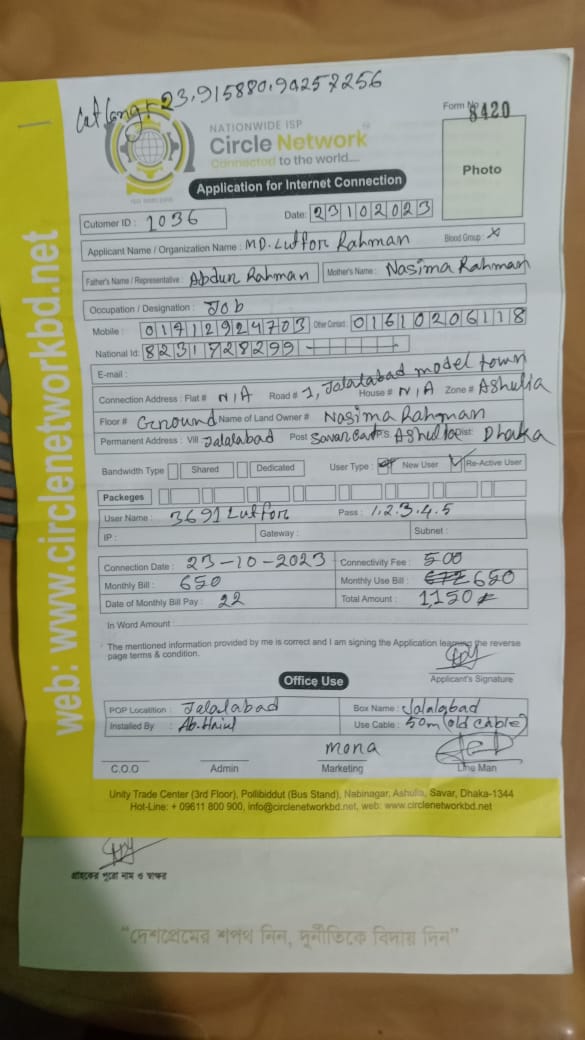 Lat Long: 23.915880, 90.257256
Form No
8420
NATIONWIDE ISP
Circle Network
Connected to the world....
Photo
Application for Internet Connection
Cutomer ID : 1036
Date: 23102023
Applicant Name / Organization Name : MD. Lutfor Rahman Blood Group : X
Father's Name / Representative : Abdur Rahman Mother's Name : Nasima Rahman
Occupation / Designation : Job
Mobile : 01712924703 Other Contact : 01610206118
National Id: 8231728299
E-mail :
Connection Address : Flat # N/A Road # 1, Jalalabad model town House # N/A Zone # Ashulia
Floor # Ground Name of Land Owner # Nasima Rahman
Permanent Address : Vill Jalalabad Post P.S Ashulia Dist: Dhaka
Bandwidth Type Shared Dedicated User Type : New User Re-Active User
Packeges
User Name : 3691 Lutfor Pass : 1.2.3.4.5
IP : Gateway : Subnet :
Connection Date : 23-10-2023 Connectivity Fee : 500
Monthly Bill : 650 Monthly Use Bill : 650
Date of Monthly Bill Pay : 22 Total Amount : 1150
In Word Amount :
The mentioned information provided by me is correct and I am signing the Application learning the reverse
page terms & condition.
Applicant's Signature
Office Use
POP Localtition : Jalalabad Box Name : Jalalabad
Installed By : Use Cable : 50m (old cable)
mona
C.O.O Admin Marketing Line Man
Unity Trade Center (3rd Floor), Pollibiddut (Bus Stand), Nabinagar, Ashulia, Savar, Dhaka-1344
Hot-Line: + 09611 800 900, info@circlenetworkbd.net, web: www.circlenetworkbd.net
web: www.circlenetworkbd.net
গ্রাহকের পুরো নাম ও স্বাক্ষর
“দেশপ্রেমের শপথ নিন, দুর্নীতিকে বিদায় দিন”